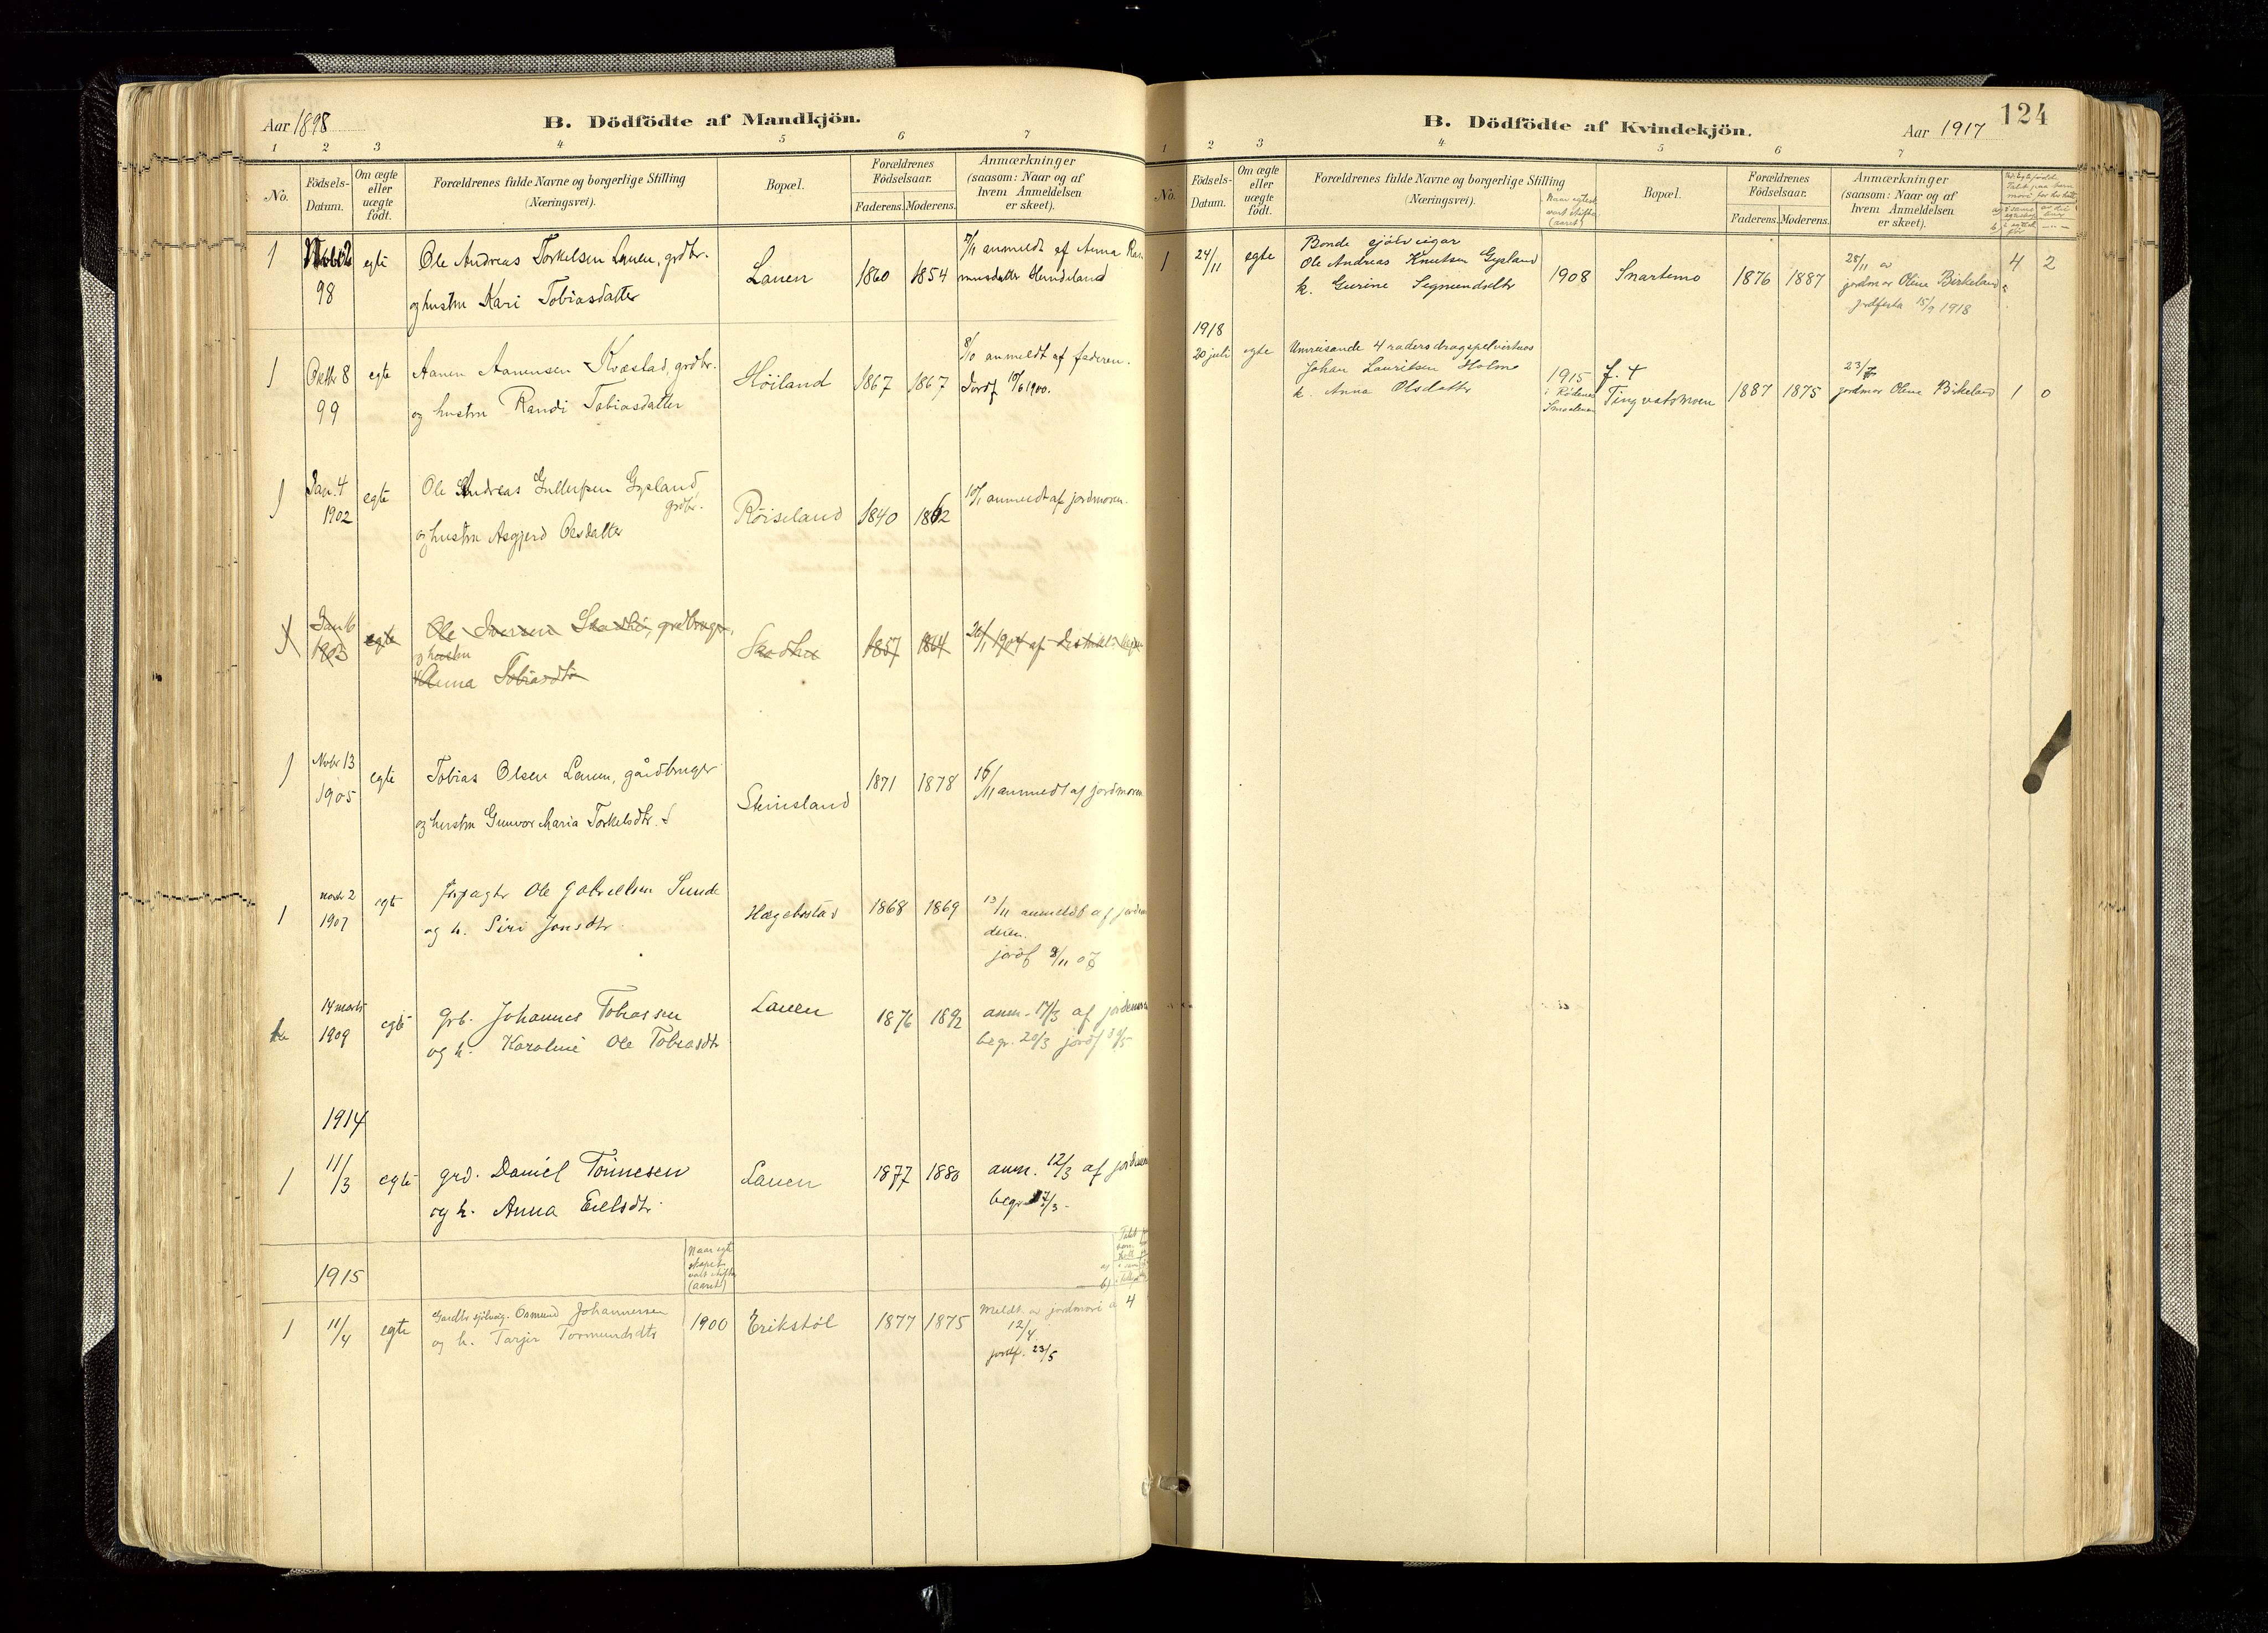 Aar 1898
B. Dödfödte af Mandkjön.
1 2 3 4 5 6 7
No.
Födsels-
Datum.
Om ægte
eller
uægte
født.
Forældrenes fulde Navne og borgerlige Stilling
(Næringsvei).
Bopæl.
Forældrenes
Fødselsaar.
Faderens. Moderens.
Anmærkninger
(saasom: Naar og af
hvem Anmeldelsen
er skeet).
1 98 egte
Ole Andreas Torkelsen Lauen, grdbr.
og hustru Kari Tobiasdatter
Lauen 1860 1854
anmeldt af Anna Ras
musdatter
1 Oktbr 8
99 egte
Aanen Aanensen Kvæstad, grdbr.
og hustru Randi Tobiasdatter
Höiland 1867 1867
8/10 anmeldt af faderen.
Jordf 10/6 1900.
1 Jan. 4
1902 egte
Ole Andreas Gysland
grdbr.
og hustru Asgjerd Olsdatter
Röiseland 1840 1862
10/1 anmeldt af jordmoren.
1 Jan 16
1903 egte
Ole Iversen, grdbruger,
og hustru
Anna Tobiasdtr
1857 1864
1904 af
1 Novbr 13
1905 egte
Tobias Olsen Lauen, gårdbruger
og hustru Gunvor Maria Torkelsdtr.
Skinsland 1871 1878
16/11 anmeldt af jordmoren
1 novbr 2
1907 egte
forpagter Ole Gabrielsen Sunde
og h. Siri Jonsdtr
Hægebostad 1868 1869
13/11 anmeldt af
jordf 8/11 07
14 marts
1909 egte
Grb. Johannes Tobiassen
og h. Karoline Ole Tobiasdtr
Lauen 1876 1892
anm. 17/3 af jordemoren
begr. 20/3 jordf 31/5
1914
1 11/3 egte
grd. Daniel Tönnesen
og h. Anna Eelsdtr
Lauen 1877 1880
anm. 12/3 af
begr 17/3.
1915
Naar egte
skapet
vart stifta
(aaret)
1 11/4 egte
Gardbr sjölveig. Osmund Johannessen
og h. Tarjer Tormundsdtr
1900 Erikstöl 1877 1875
Meldt av jordmori 4
12/4.
jordf. 23/5
B. Dödfödte af Kvindekjön.
Aar 1917
124
1 2 3 4 5 6 7
No.
Födsels-
Datum.
Om ægte
eller
uægte
født.
Forældrenes fulde Navne og borgerlige Stilling
(Næringsvei).
Naar egtesk
vart stifta
(aaret)
Bopæl.
Forældrenes
Fødselsaar.
Faderens. Moderens.
Anmærkninger
(saasom: Naar og af
hvem Anmeldelsen
er skeet).
1 24/11 egte
Bonde sjölveigar
Ole Andreas Knutsen Gysland
k. Gurine Segmundsdtr
1908 Snartemo 1876 1887
25/11 av
jordmor Olene Birkeland
jordfesta 15/9 1918
4 2
1918
20 juli egte
Umreisande 4 raders dragspelvirtuos
Johan Lauritsen Holme
k. Anna Olsdatter
1915
i Rödenes
Smaalenene
f. t
Tingvatsmoen
1887 1875
23/7
jordmor Olene Birkeland 1 0